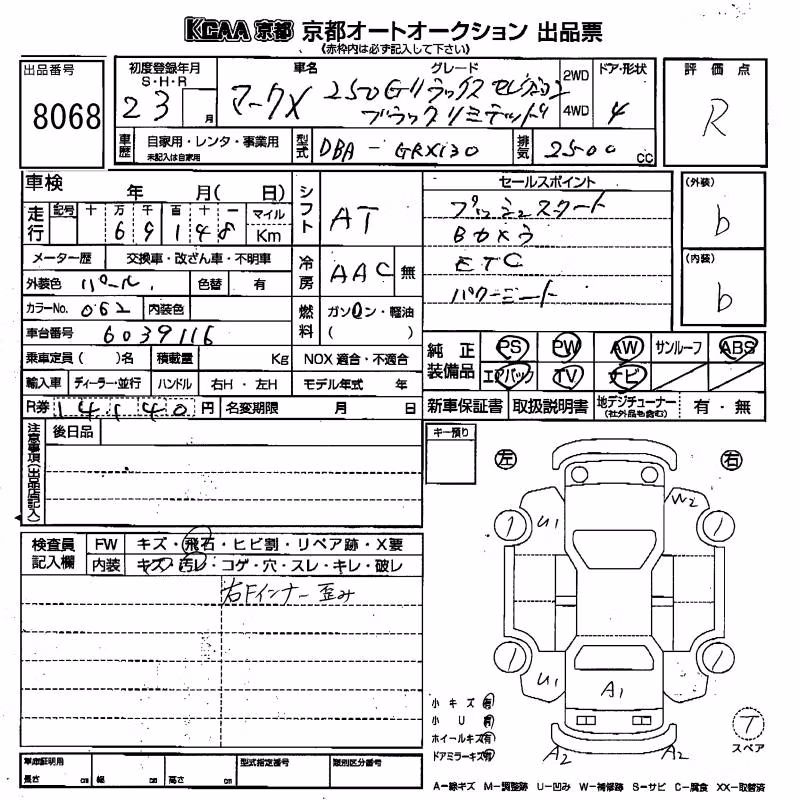 KCAA 京都 京都オートオークション 出品票
(赤枠内は必ず記入して下さい)
出品番号
8068
初度登録年月
S・H・R
23 月
車名
マークX
グレード
250Gリラックスセレクション
ブラックリミテッド
2WD
4WD
ドア・形状
4
評価点
R
車歴
自家用・レンタ・事業用
未記入は自家用
型式
DBA-GRX130
排気
2500 CC
車検 年 月( 日)
走行
記号 十 万 千 百 十 一 マイル
69148 Km
メーター歴 交換車・改ざん車・不明車
外装色 パール 色替 有
カラーNo. 062 内装色
車台番号 6039116
乗車定員( )名 積載量 Kg
輸入車 ディーラー・並行 ハンドル 右H・左H
R券 14140 円 名変期限 月 日
シフト AT
冷房 AAC 無
燃料 ガソリン・軽油
( )
NOX 適合・不適合
モデル年式 年
セールスポイント
プッシュスタート
Bカメラ
ETC
パワーシート
(外装)
b
(内装)
b
純正装備品
PS PW AW サンルーフ ABS
エアバック TV ナビ
新車保証書 取扱説明書 地デジチューナー 有・無
(社外品も含む)
注意事項(出品店記入)
後日品
キー預り
左 右
検査員記入欄
FW キズ・飛石・ヒビ割・リペア跡・X要
内装 キズ・汚レ・コゲ・穴・スレ・キレ・破レ
右Fインナー歪み
U1 W2
1 1
1 1
U1 A1
A2 A2
小キズ 有
小U 有
ホイールキズ 有
ドアミラーキズ 有
T
スペア
車庫証明用
長さ cm 幅 cm 高さ cm
型式指定番号
類別区分番号
A−線キズ M−調整跡 U−凹み W−補修跡 S−サビ C−腐食 XX−取替済